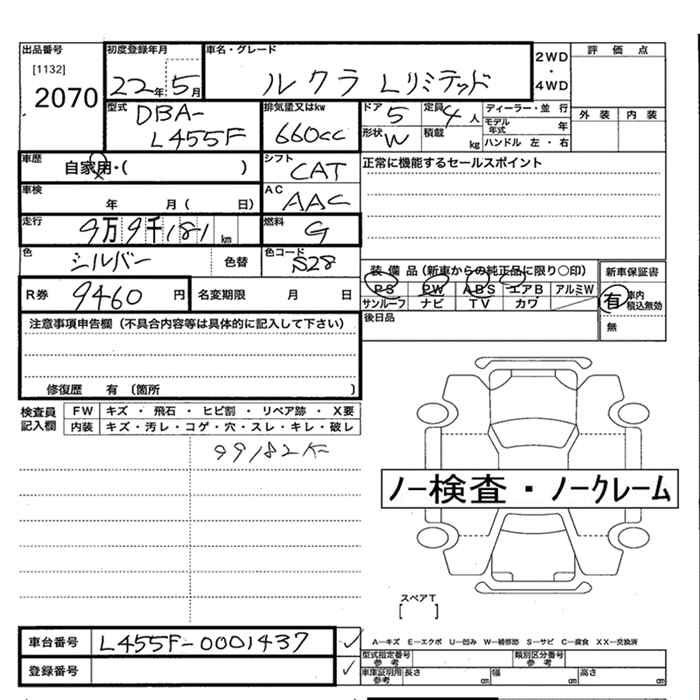 出品番号
[1132]
2070
初度登録年月
22年 5月
車名・グレード
ルクラ Lリミテッド
2WD
・
4WD
評価点
外装 内装
型式
DBA-
L455F
排気量又はkw
660cc
ドア 5
定員 4人
ディーラー・並行
モデル年式 年
ハンドル 左・右
形状 W
積載 kg
車歴
自家用・( )
シフト
CAT
正常に機能するセールスポイント
車検
年 月( 日)
AC
AAC
走行
9万9千181km
燃料
G
色
シルバー
色替
色コード
S28
装備品(新車からの純正品に限り○印)
PS PW ABS エアB アルミW
サンルーフ ナビ TV カワ
新車保証書
有 車内積込無効
無
R券 9460円
名変期限 月 日
後日品
注意事項申告欄(不具合内容等は具体的に記入して下さい)
修復歴 有 (箇所 )
検査員記入欄
FW キズ・飛石・ヒビ割・リペア跡・X要
内装 キズ・汚レ・コゲ・穴・スレ・キレ・破レ
99182K
ノー検査・ノークレーム
スペアT
[ ]
車台番号 L455F-0001437 ✓
登録番号 ✓
A−キズ E−エクボ U−凹み W−補修跡 S−サビ C−腐食 XX−交換済
型式指定番号 参考
類別区分番号 参考
車庫証明用 参考 長さ cm 幅 cm 高さ cm